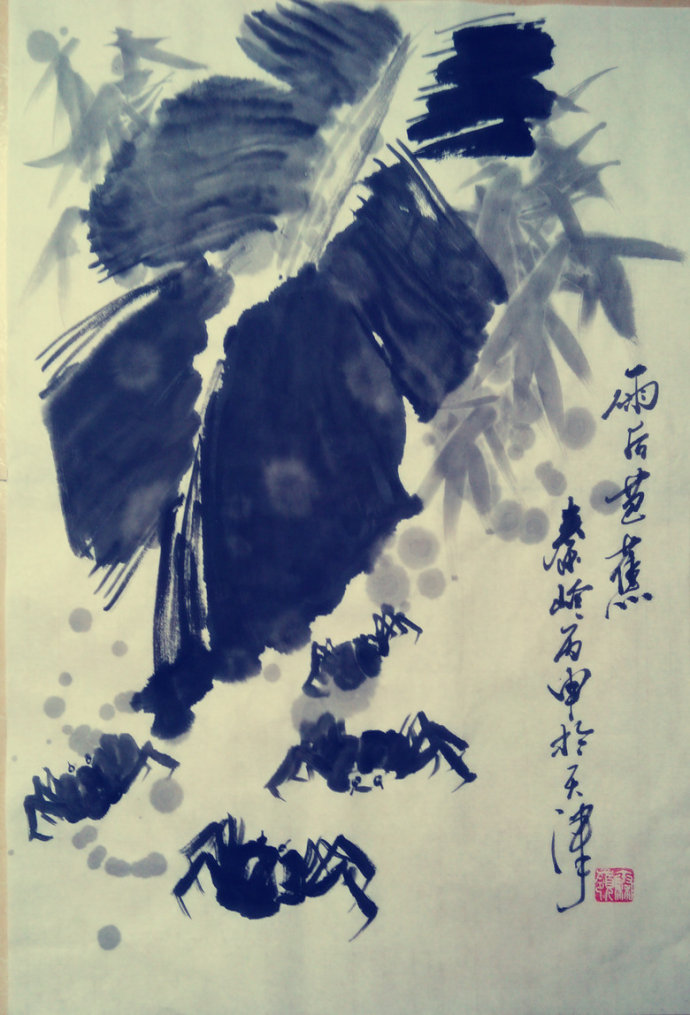 雨后芭蕉
秦岭丙申於天津